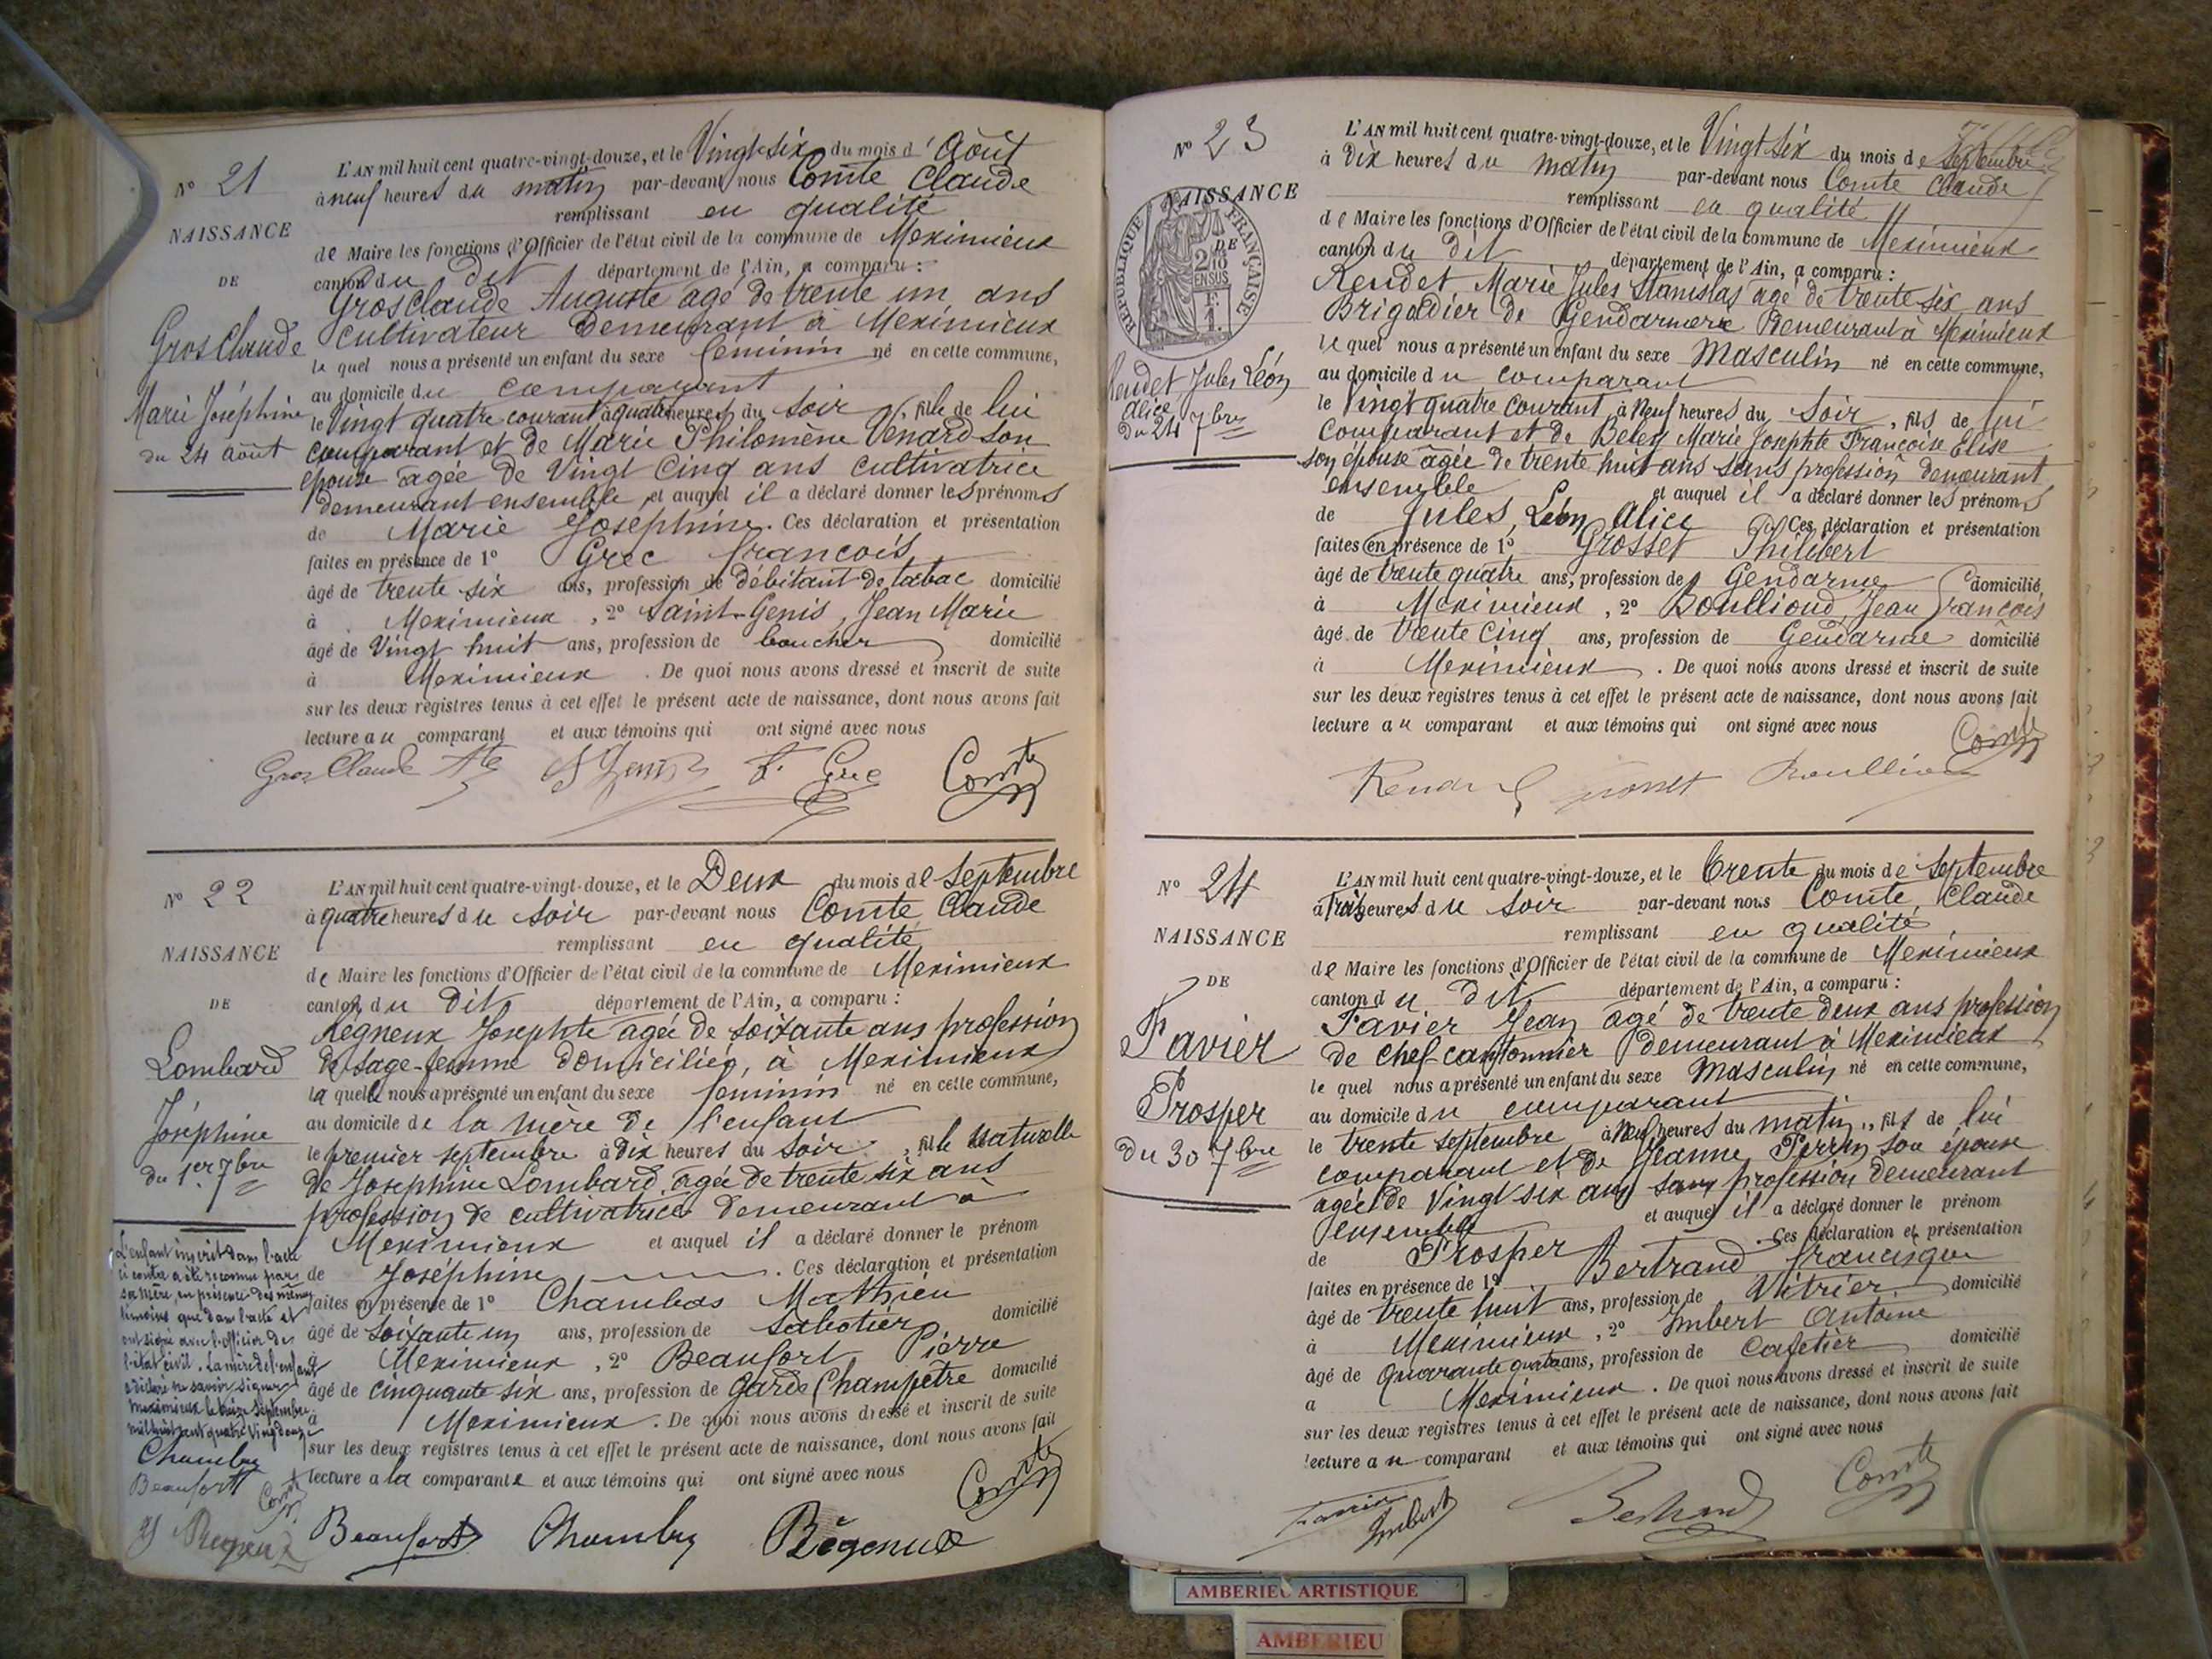 N° 21
NAISSANCE
DE
Grosclaude
Marie Joséphine
du 24 août
L'AN mil huit cent quatre-vingt-douze, et le Vingt-six du mois d'Août
à neuf heures du matin par-devant nous Comte Claude
remplissant en qualité
de Maire les fonctions d'Officier de l'état civil de la commune de Meximieux
canton du dit département de l'Ain, a comparu :
Grosclaude Auguste agé de trente un ans
cultivateur Demeurant à Meximieux
le quel nous a présenté un enfant du sexe féminin né en cette commune,
au domicile du comparant
le Vingt quatre courant à quatre heures du soir, fille de lui
comparant et de Marie Philomène Venard son
épouse agée de Vingt cinq ans cultivatrice
demeurant ensemble et auquel il a déclaré donner les prénoms
de Marie Josephine. Ces déclaration et présentation
faites en présence de 1° Grec françois
âgé de trente six ans, profession de débitant de tabac domicilié
à Meximieux, 2° Saint-Genis, Jean Marie
âgé de Vingt huit ans, profession de boucher domicilié
à Meximieux. De quoi nous avons dressé et inscrit de suite
sur les deux registres tenus à cet effet le présent acte de naissance, dont nous avons fait
lecture au comparant et aux témoins qui ont signé avec nous
Gros Claude Ate F. Grec Comte
N° 22
NAISSANCE
DE
Lombard
Joséphine
du 1er 7bre
L'AN mil huit cent quatre-vingt-douze, et le Deux du mois de Septembre
à quatre heures du soir par-devant nous Comte Claude
remplissant en qualité
de Maire les fonctions d'Officier de l'état civil de la commune de Meximieux
canton du dit département de l'Ain, a comparu :
Regneux Josephte agée de soixante ans profession
de sage-femme domiciliée, à Meximieux
la quelle nous a présenté un enfant du sexe feminin né en cette commune,
au domicile de la mère de l'enfant
le premier septembre à dix heures du soir, fille Naturelle
de Josephine Lombard, agée de trente six ans
profession de cultivatrice demeurant à
Meximieux et auquel il a déclaré donner le prénom
de Joséphine. Ces déclaration et présentation
faites en présence de 1° Chambas Mathieu
âgé de soixante un ans, profession de sabotier domicilié
à Meximieux, 2° Beaufort Pierre
âgé de cinquante six ans, profession de Garde Champêtre domicilié
à Meximieux. De quoi nous avons dressé et inscrit de suite
sur les deux registres tenus à cet effet le présent acte de naissance, dont nous avons fait
lecture a la comparante et aux témoins qui ont signé avec nous
Beaufort Comte
L'enfant inscrit dans l'acte
ci contre a été reconnu par
sa mère, en présence des mêmes
témoins que dans l'acte et
ont signé avec l'officier de
l'état civil. La mère de l'enfant
a déclaré ne savoir signer
Meximieux le Septembre
mil huit cent quatre Vingt douze
Beaufort
Comte
N° 23
NAISSANCE
DE
RÉPUBLIQUE FRANÇAISE
2/10
EN SUS
Rendet Jules Léon
Alice
du 24 7bre
L'AN mil huit cent quatre-vingt-douze, et le Vingt six du mois de septembre
à dix heures du matin par-devant nous Comte Claude
remplissant en qualité
de Maire les fonctions d'Officier de l'état civil de la commune de Meximieux
canton du dit département de l'Ain, a comparu :
Rendet Marie Jules Stanislas agé de trente six ans
Brigadier de Gendarmerie Demeurant à Meximieux
le quel nous a présenté un enfant du sexe Masculin né en cette commune,
au domicile du comparant
le Vingt quatre courant à Neuf heures du soir, fils de lui
comparant et de Marie Josephte Françoise Elise
son épouse âgée de trente huit ans sans profession demeurant
ensemble et auquel il a déclaré donner les prénoms
de Jules, Léon Alice Ces déclaration et présentation
faites en présence de 1° Grosset Philibert
âgé de trente quatre ans, profession de Gendarme domicilié
à Meximieux, 2° Boullioud, Jean François
âgé de trente cinq ans, profession de Gendarme domicilié
à Meximieux. De quoi nous avons dressé et inscrit de suite
sur les deux registres tenus à cet effet le présent acte de naissance, dont nous avons fait
lecture au comparant et aux témoins qui ont signé avec nous
Comte
N° 24
NAISSANCE
DE
Favier
Prosper
du 30 7bre
L'AN mil huit cent quatre-vingt-douze, et le trente du mois de Septembre
à trois heures du soir par-devant nous Comte, Claude
remplissant en qualité
de Maire les fonctions d'Officier de l'état civil de la commune de Meximieux
canton du dit département de l'Ain, a comparu :
Favier Jean agé de trente deux ans profession
de chef cantonnier demeurant à Meximieux
le quel nous a présenté un enfant du sexe Masculin né en cette commune,
au domicile du comparant
le trente septembre à Neuf heures du matin, fils de lui
comparant et de Jeanne Perrin son épouse
agée de Vingt six ans sans profession demeurant
ensemble et auquel il a déclaré donner le prénom
de Prosper. Ces déclaration et présentation
faites en présence de 1° Bertrand francisque
âgé de trente huit ans, profession de Vitrier domicilié
à Meximieux, 2° Imbert Antoine
âgé de Quarante quatre ans, profession de Cafetier domicilié
a Meximieux. De quoi nous avons dressé et inscrit de suite
sur les deux registres tenus à cet effet le présent acte de naissance, dont nous avons fait
lecture au comparant et aux témoins qui ont signé avec nous
Favier Imbert Bertrand Comte
AMBERIEU ARTISTIQUE
AMBERIEU